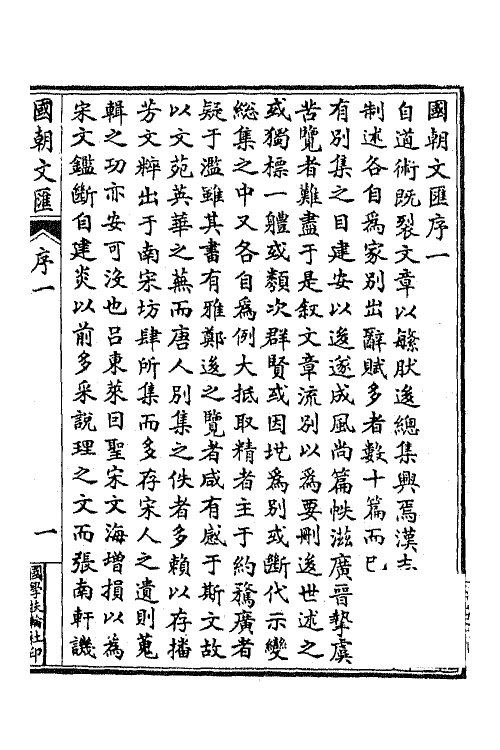 國朝文匯序一
自道術既裂文章以繇肰後總集興焉漢志
制述各自爲家別出辭賦多者數十篇而已
有別集之目建安以後遂成風尚篇帙滋廣晉摯虞
苦覽者難盡于是叙文章流別以爲要刪後世述之
或獨標一體或類次群賢或因地爲別或斷代示變
総集之中又各自爲例大抵取精者主于約騖廣者
疑于濫雖其書有雅鄭後之覽者咸有感于斯文故
以文苑英華之蕪而唐人別集之佚者多賴以存播
芳文粹出于南宋坊肆所集而多存宋人之遺則蒐
輯之功亦安可沒也呂東萊因聖宋文海增損以爲
宋文鑑斷自建炎以前多采說理之文而張南軒譏
國朝文匯
序一
一
國學扶輪社印